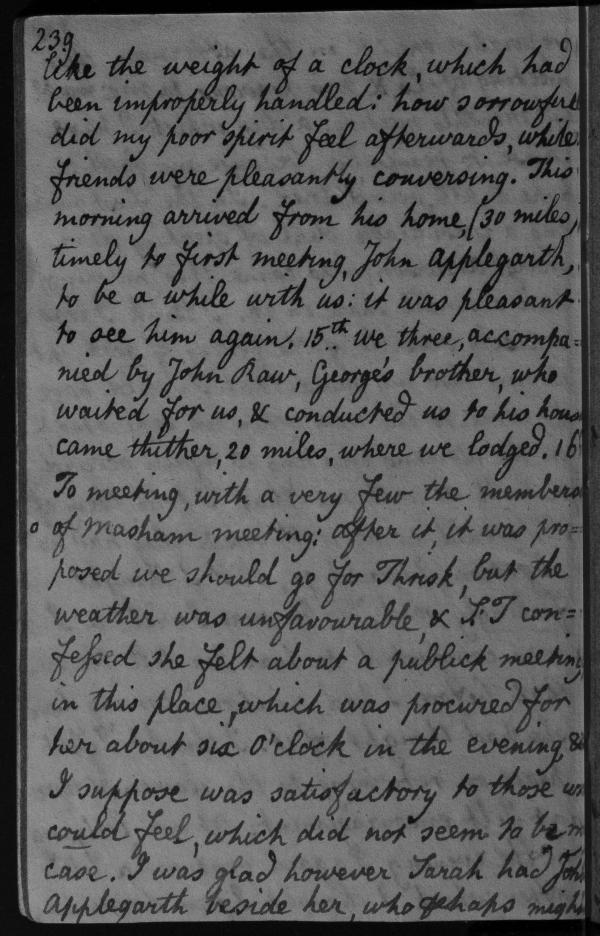 239
like the weight of a clock, which had
been improperly handled: how sorrowful
did my poor spirit feel afterwards, while
friends were pleasantly conversing. This
morning arrived from his home, (30 miles,
timely to first meeting, John Applegarth,
to be a while with us: it was pleasant
to see him again. 15th we three, accompa=
nied by John Raw, George's brother, who
waited for us, & conducted us to his hous
came thither, 20 miles, where we lodged. 16
To meeting, with a very few the members
o of Masham meeting: after it, it was pro=
posed we should go for Thrisk, but the
weather was unfavourable, & S:T con=
fessed she felt about a publick meeting
in this place, which was procured for
her about six O'clock in the evening, &
I suppose was satisfactory to those
could feel, which did not seem to be m
case. I was glad however Sarah had John
Applegarth beside her, who perhaps might